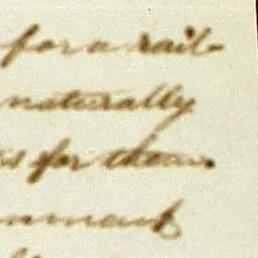 for a rail-
naturally
for them.